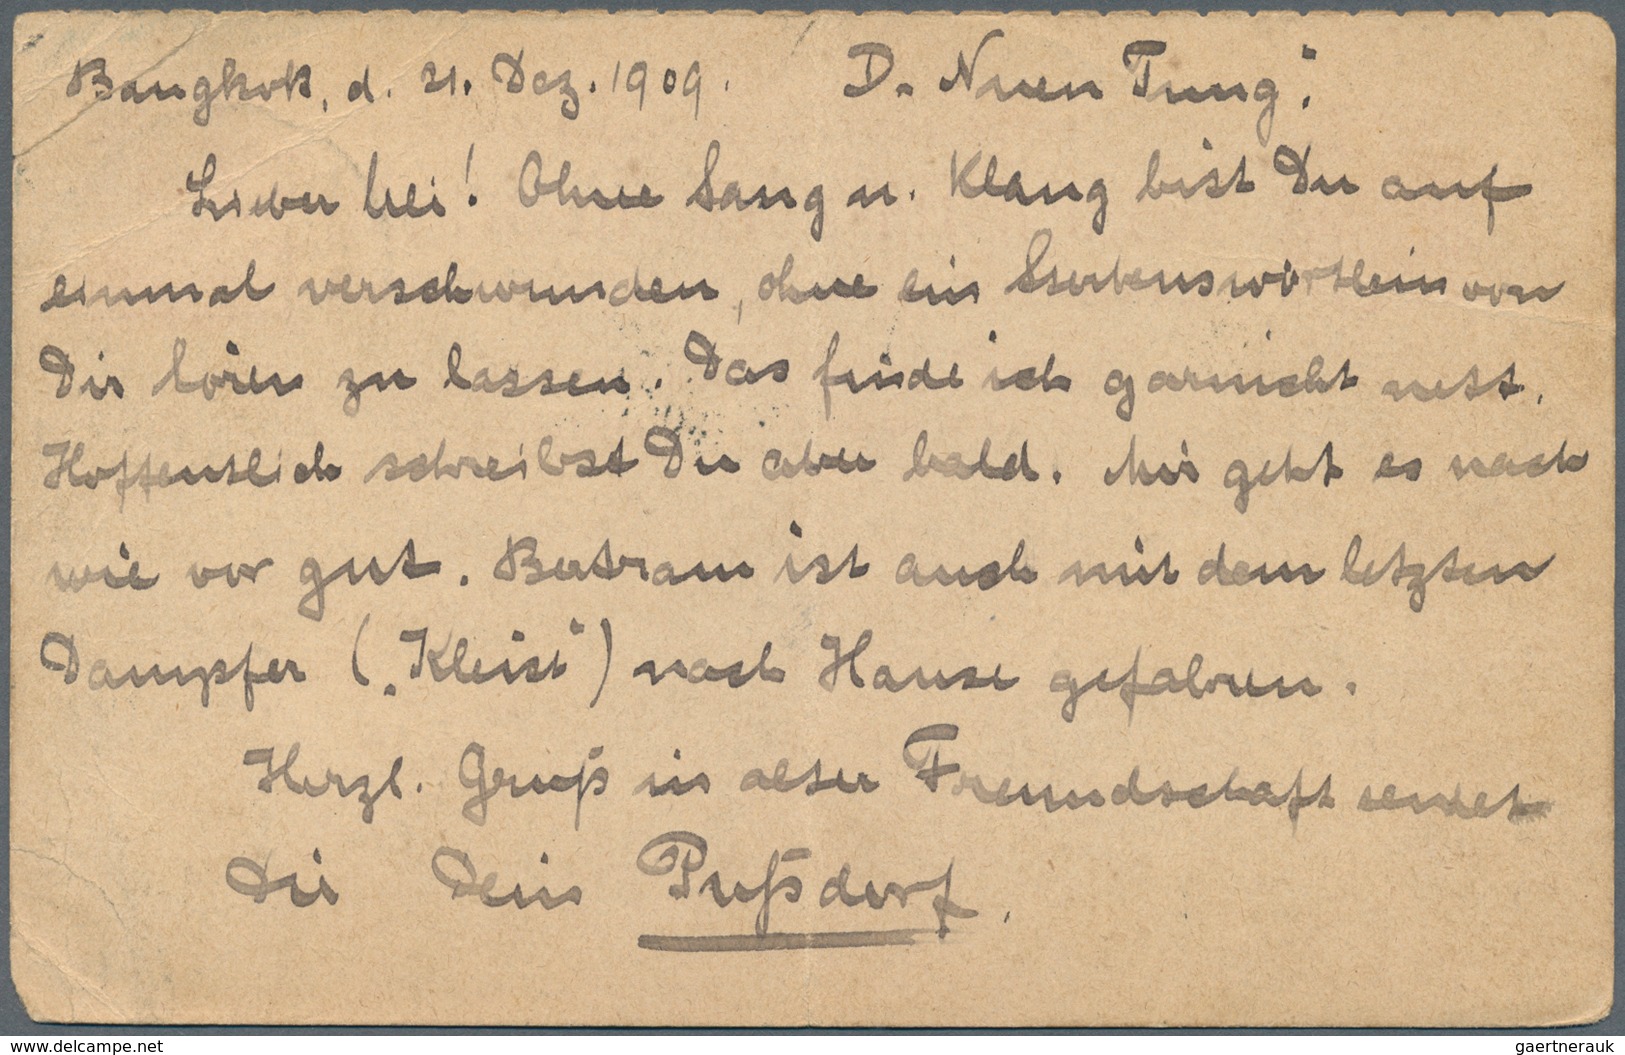 Bangkok, d. 21. Dez. 1909. D. Nuen Tung.
Lieber Uli! Ohne Sang u. Klang bist Du auf
einmal verschwunden, ohne ein Sterbenswörtlein von
Dir hören zu lassen. Das finde ich garnicht nett.
Hoffentlich schreibst Du aber bald. Mir geht es nach
wie vor gut. Bertram ist auch mit dem letzten
Dampfer („Kleist“) nach Hause gefahren.
Herzl. Gruß in alter Freundschaft sendet
Dir Dein Pußdorf.
www.delcampe.net
gaertnerauk